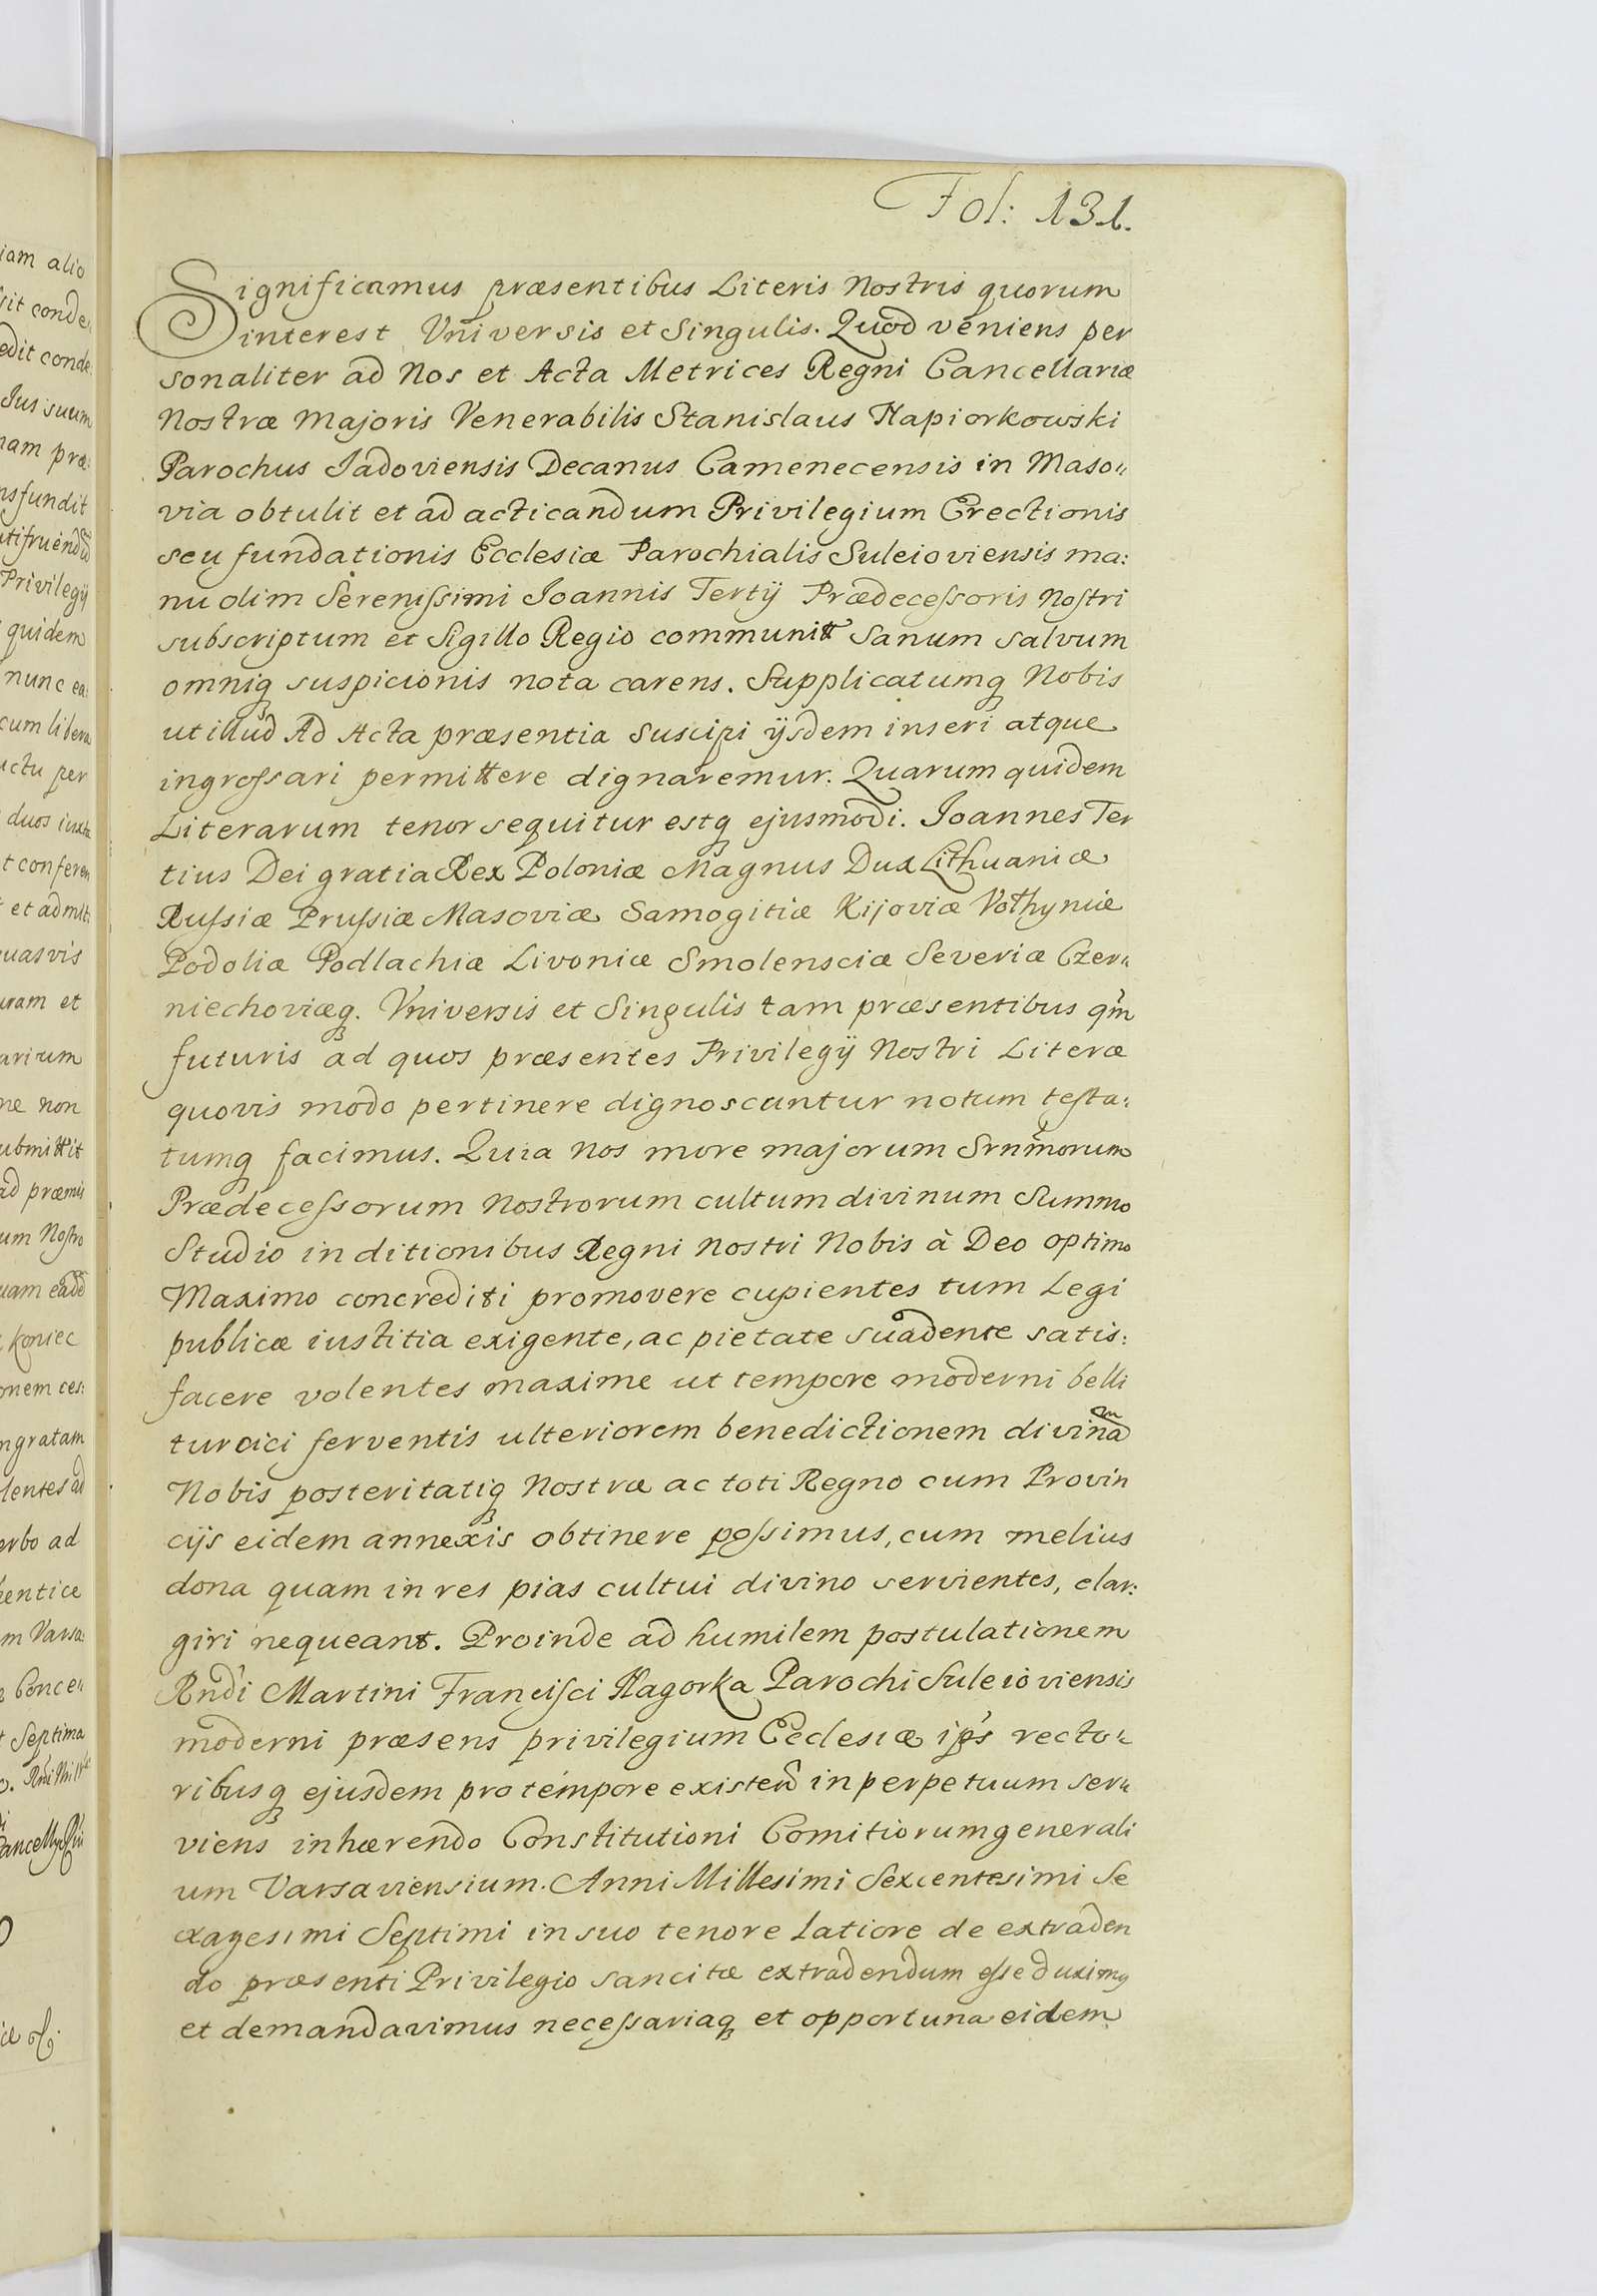 Fol: 131.
Significamus præsentibus Literis Nostris quorum
interest Vniversis et Singulis. Quod veniens per
sonaliter ad Nos et Acta Metrices Regni Cancellariæ
Nostræ Majoris Venerabilis Stanislaus Napiorkowski
Parochus Jadoviensis Decanus Camenecensis in Maso„
via obtulit et ad acticandum Privilegium Erectionis
seu fundationis Ecclesiæ Parochialis Suleioviensis ma:
nu olim Serenißimi Joannis Tertij Prædeceßoris Nostri
subscriptum et Sigillo Regio communitt Sanum salvum
omniq suspicionis nota carens. Supplicatumq Nobis
ut illud Ad Acta præsentia Suscipi ijsdem inseri atque
ingroßari permittere dignaremur. Quarum quidem
Literarum tenor sequitur estq ejusmodi. Joannes Ter
tius Dei gratia Rex Poloniæ Magnus Dux Lithuaniæ
Rußiæ Prußiæ Masoviæ Samogitiæ Kijoviæ Volhyniæ
Podoliæ Podlachiæ Livoniæ Smolensciæ Severiæ Czer„
niechoviæq. Vniversis et Singulis tam præsentibus qm
futuris ad quos præsentes Privilegij Nostri Literæ
quovis modo pertinere dignoscuntur notum testa:
tumq facimus. Quia nos more majorum Srnmorum
Prædeceßorum Nostrorum cultum divinum Summo
Studio in ditionibus Regni Nostri Nobis à Deo optimo
Maximo concrediti promovere cupientes tum Legi
publicæ iustitia exigente, ac pietate suadente satis:
facere volentes maxime ut tempore moderni belli
turcici ferventis ulteriorem benedictionem divinam
Nobis posteritatiq Nostræ ac toti Regno cum Provin
cijs eidem annexis obtinere poßimus, cum melius
dona quam in res pias cultui divino servientes, elar:
giri nequeant. Proinde ad humilem postulationem
Rndi Martini Francisci Nagorka Parochi Suleioviensis
moderni præsens privilegium Ecclesiæ ips recto„
ribusq ejusdem pro tempore existend in perpetuum ser„
viens inhærendo Constitutioni Comitiorum generali
um Varsaviensium. Anni Millesimi Sexcentesimi Se
xagesimi Septimi in suo tenore Latiore de extraden
do præsenti Privilegio sancitæ extradendum eße duximq
et demandavimus neceßariaq et opportuna eidem